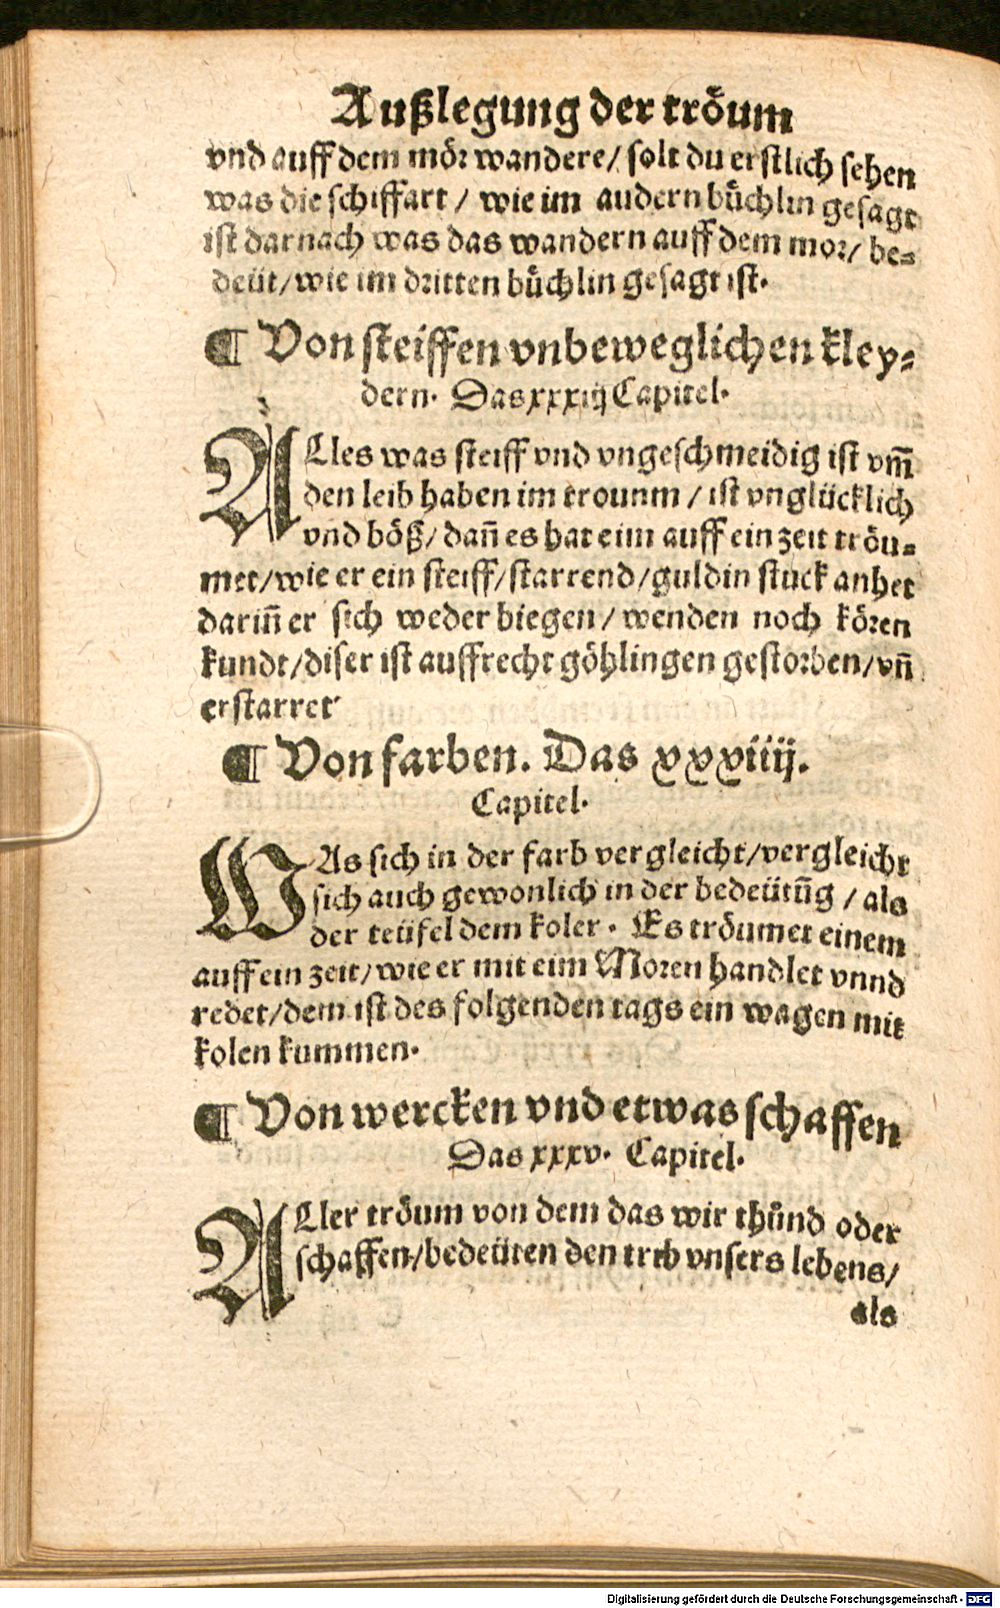 Außlegung der tröum
vnd auff dem mör wandere/ solt du erstlich sehen
was die schiffart / wie im andern bůchlin gesagt
ist darnach was das wandern auff dem mor/ be-
deüt/wie im dritten bůchlin gesagt ist.
¶ Von steiffen vnbeweglichen kley-
dern. Das xxxiij Capitel.
ALles was steiff vnd vngeschmeidig ist vm̃
den leib haben im trounm / ist vnglücklich
vnd böß/ dañ es hat eim auff ein zeit tröu-
met/wie er ein steiff/starrend/guldin stuck anhet
dariñ er sich weder biegen/ wenden noch kören
kundt/diser ist auffrecht göhlingen gestorben/vñ
erstarret
¶ Von farben. Das xxxiiij.
Capitel.
WAs sich in der farb vergleicht/vergleicht
sich auch gewonlich in der bedeütũg / als
der teüfel dem koler. Es tröumet einem
auff ein zeit/wie er mit eim Moren handlet vnnd
redet/dem ist des folgenden tags ein wagen mit
kolen kummen.
¶ Von wercken vnd etwas schaffen
Das xxxv. Capitel.
ALler tröum von dem das wir thůnd oder
schaffen/bedeüten den trib vnsers lebens/
als
Digitalisierung gefördert durch die Deutsche Forschungsgemeinschaft - DFG